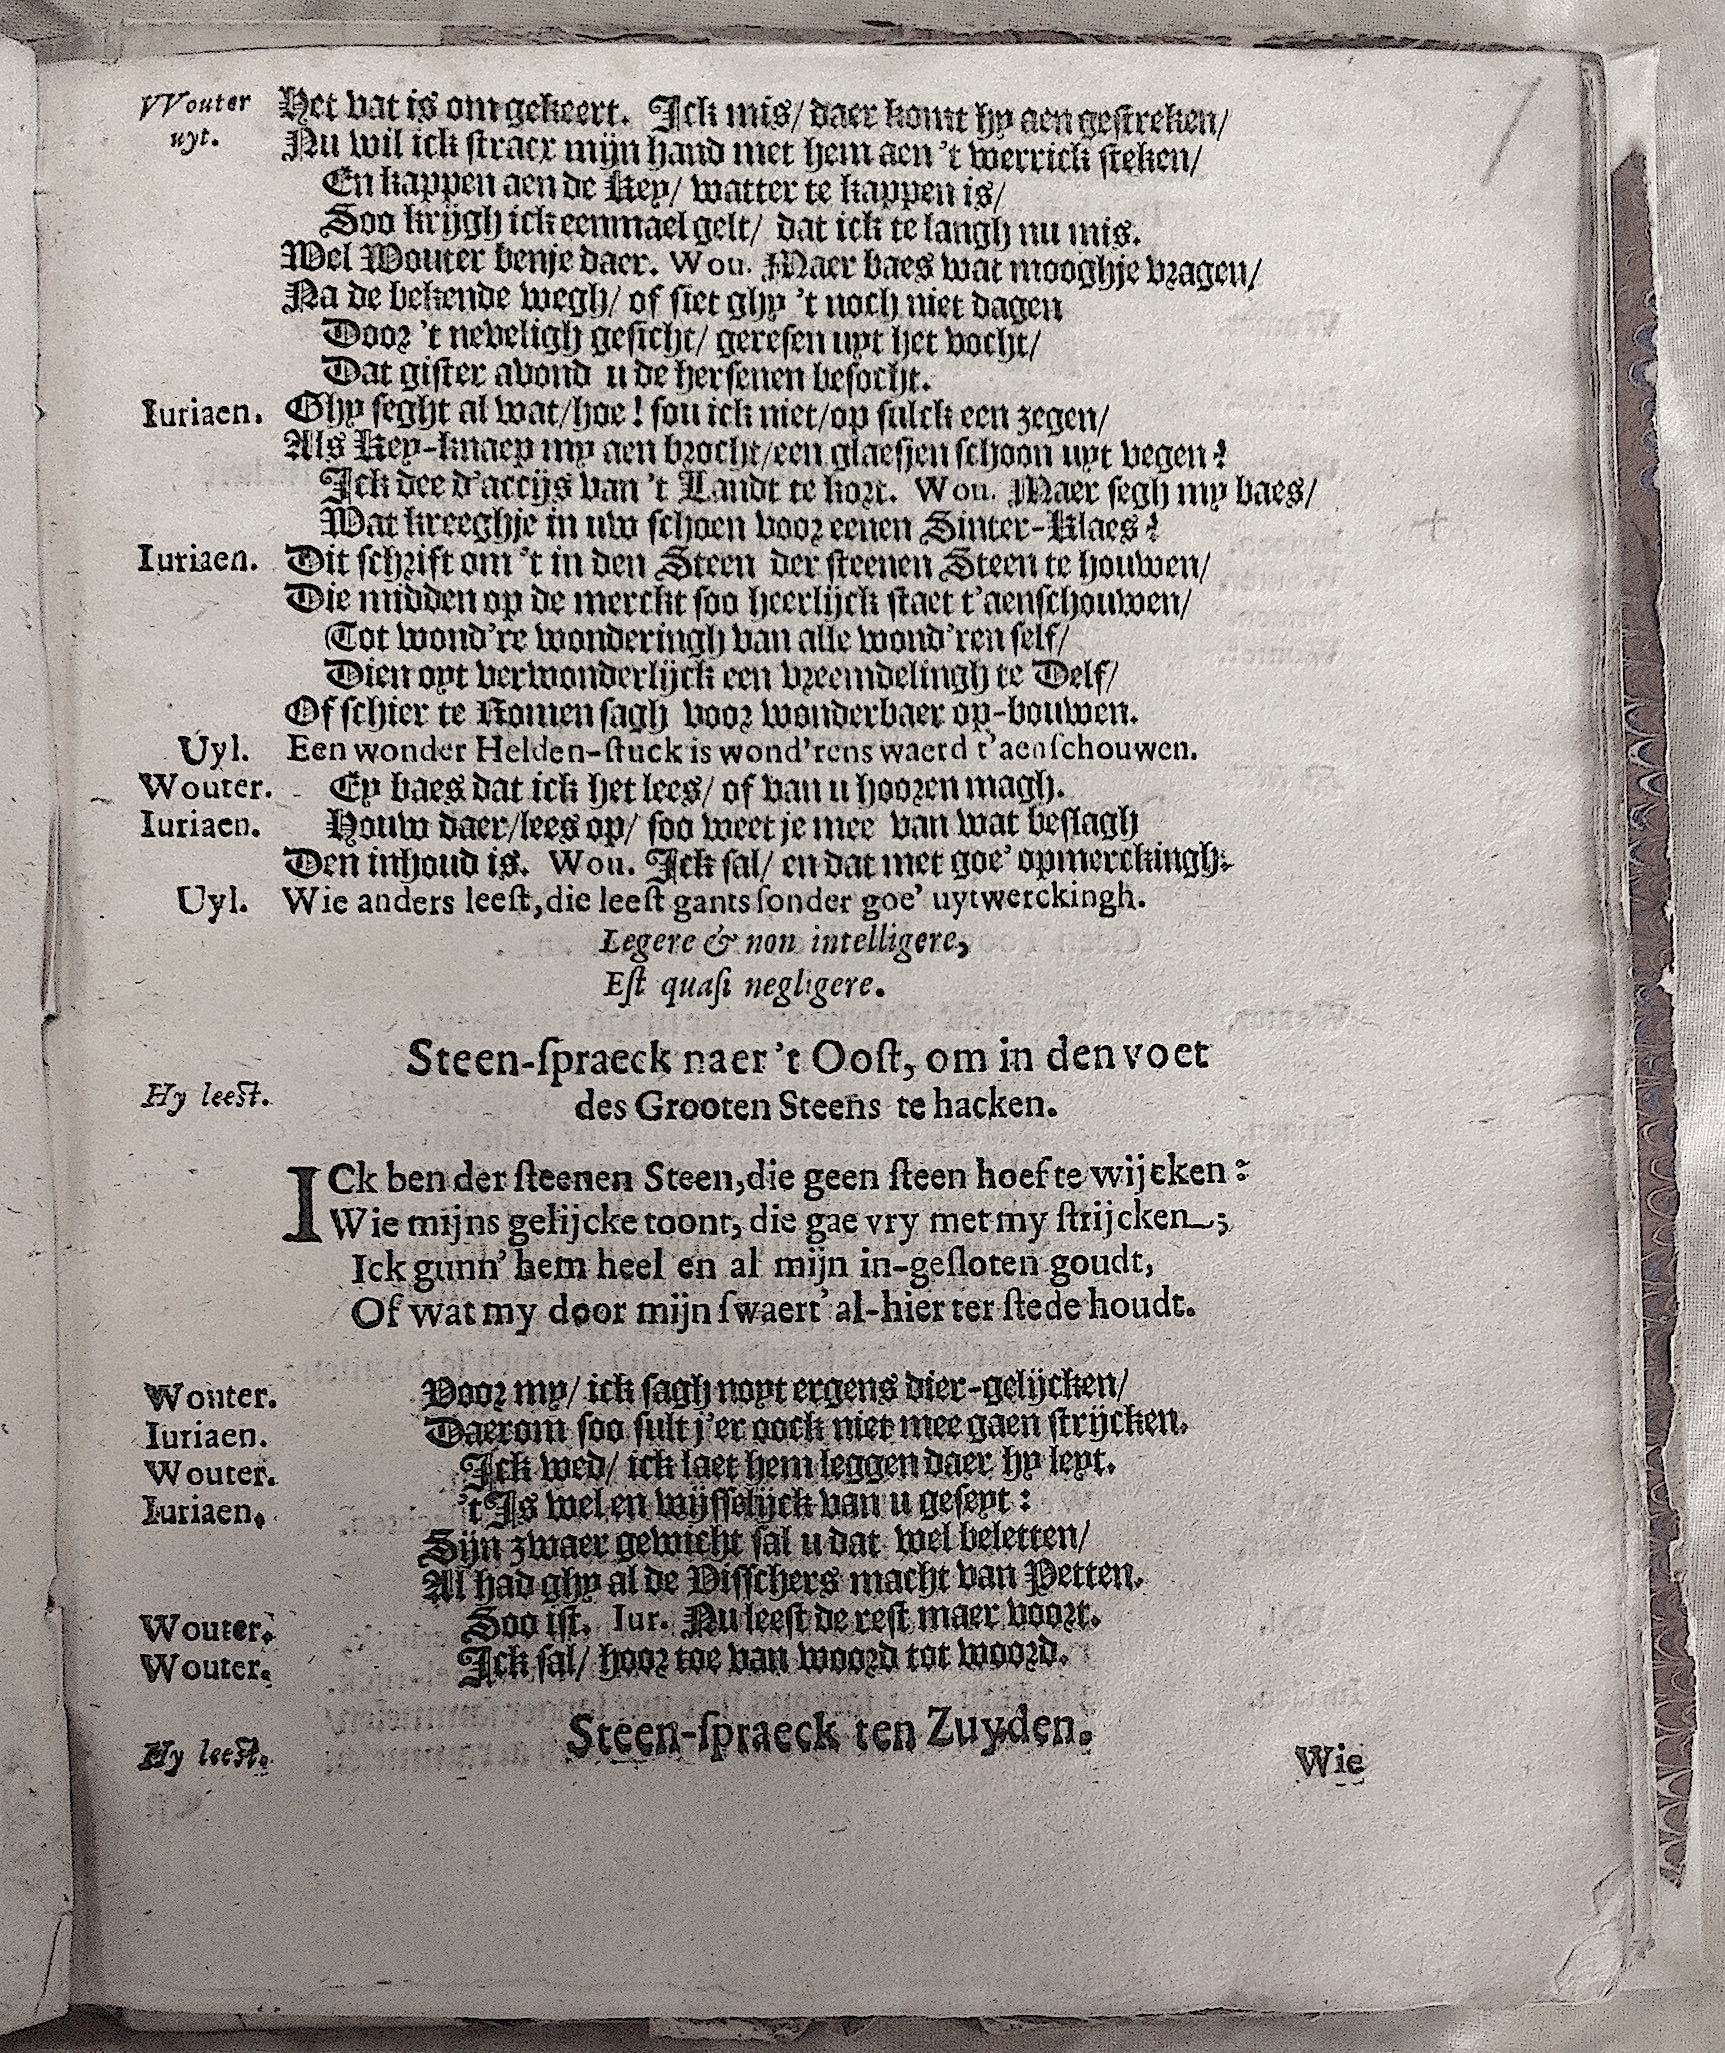 7
VVouter Het vat is omgekeert. Ick mis/ daer komt hy aen gestreken/
uyt. Nu wil ick stracx mijn hand met hem aen 't werrick steken/
En kappen aen de Key/ watter te kappen is/
Soo krijgh ick eenmael gelt/ dat ick te langh nu mis.
Wel Wouter benje daer. Wou. Maer baes wat mooghje vragen/
Na de bekende wegh/ of siet ghy 't noch niet dagen
Door 't neveligh gesicht/ geresen uyt het vocht/
Dat gister avond u de hersenen besocht.
Iuriaen. Ghy seght al wat/hoe! sou ick niet/op sulck een zegen/
Als Key-knaep my aen brocht/een glaesjen schoon uyt vegen?
Ick dee d'accijs van 't Landt te kort. Wou. Maer segh my baes/
Wat kreeghje in uw schoen voor eenen Sinter-Klaes?
Iuriaen. Dit schrift om 't in den Steen der steenen Steen te houwen/
Die midden op de merckt soo heerlijck staet t'aenschouwen/
(Tot wond're wonderingh van alle wond'ren self/
Dien oyt verwonderlijck een vreemdelingh te Delf/
Of schier te Romen sagh voor wonderbaer op-bouwen.
Uyl. Een wonder Helden-ſtuck is wond'rens waerd t'aenſchouwen.
Wouter. Ey baes dat ick het lees/ of van u hooren magh.
Iuriaen. Houw daer/lees op/ soo weet je mee van wat beslagh
Den inhoud is. Wou. Ick sal/ en dat met goe' opmerckingh.
Uyl. Wie anders leeſt,die leeſt gants ſonder goe' uytwerckingh.
Legere & non intelligere,
Eſt quaſi negligere.
Steen-ſpraeck naer 't Ooſt, om in den voet
Hy leeſt. des Grooten Steens te hacken.
ICk ben der ſteenen Steen,die geen ſteen hoef te wijcken:
Wie mijns gelijcke toont, die gae vry met my ſtrijcken;
Ick gunn' hem heel en al mijn in-geſloten goudt,
Of wat my door mijn ſwaert' al-hier ter ſtede houdt.
Wouter. Voor my/ ick sagh noyt ergens dier-gelijcken/
Iuriaen. Daerom soo sult j'er oock niet mee gaen strijcken.
Wouter. Ick wed/ ick laet hem leggen daer hy leyt.
Iuriaen. 't Is wel en wijsselijck van u geseyt:
Sijn zwaer gewicht sal u dat wel beletten/
Al had ghy al de Visschers macht van Petten.
Wouter. Soo ist. Iur. Nu leest de rest maer voort.
Wouter. Ick sal/ hoor toe van woord tot woord.
Steen-ſpraeck ten Zuyden.
Hy leeſt.
Wie